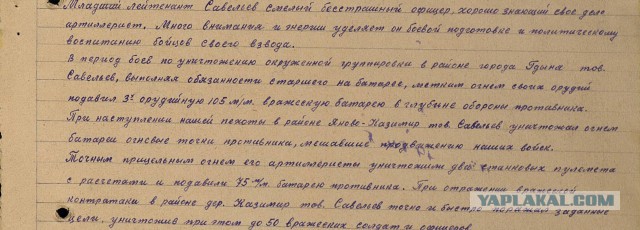 Младший лейтенант Савельев смелый бесстрашный офицер, хорошо знающий свое дело
артиллерист. Много внимания и энергии уделяет он боевой подготовке и политическому
воспитанию бойцов своего взвода.
В период боев по уничтожению окруженной группировки в районе города Гдыня тов.
Савельев, выполняя обязанности старшего на батарее, метким огнем своих орудий
подавил 3х орудийную 105 м/м. вражескую батарею в глубине обороны противника.
При наступлении нашей пехоты в районе Яново-Казимир тов. Савельев уничтожал огнем
батареи огновые точки противника, мешавшие продвижению наших войск.
Точным прицельным огнем его артиллеристы уничтожили два станковых пулемета
с расчетами и подавили 75 м/м. батарею противника. При отражении вражеской
контратаки в районе дер. Казимир тов. Савельев точно и быстро поражал заданные
цели, уничтожив при этом до 50 вражеских солдат и офицеров.
YAPLAKAL.COM